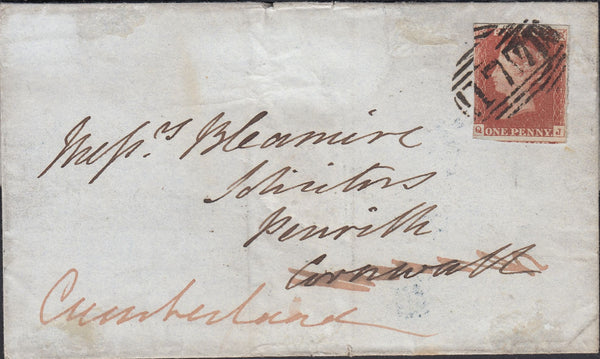 Mess.rs Bleamire
Solicitors
Penrith
Cornwall
Cumberland
ONE PENNY
Q J